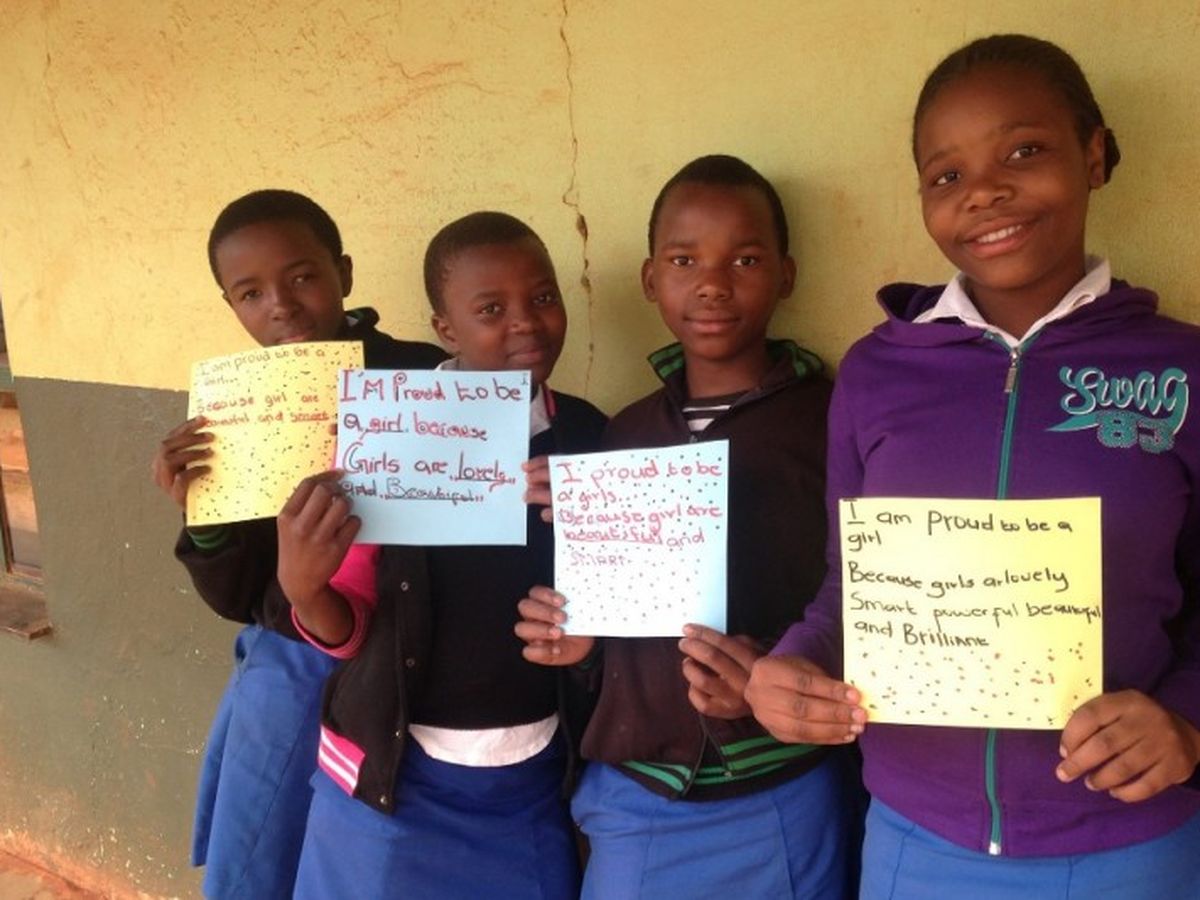 I am proud to be a
Girl...
Because girl are
beautiful and smart
I'M Proud to be
a girl. because
Girls are lovely
and Beautiful..
I proud to be
a girls...
Because girl are
beautiful and
smart
I am proud to be a
girl
Because girls arlovely
Smart powerful beautiful
and Brilliant
Swag
83